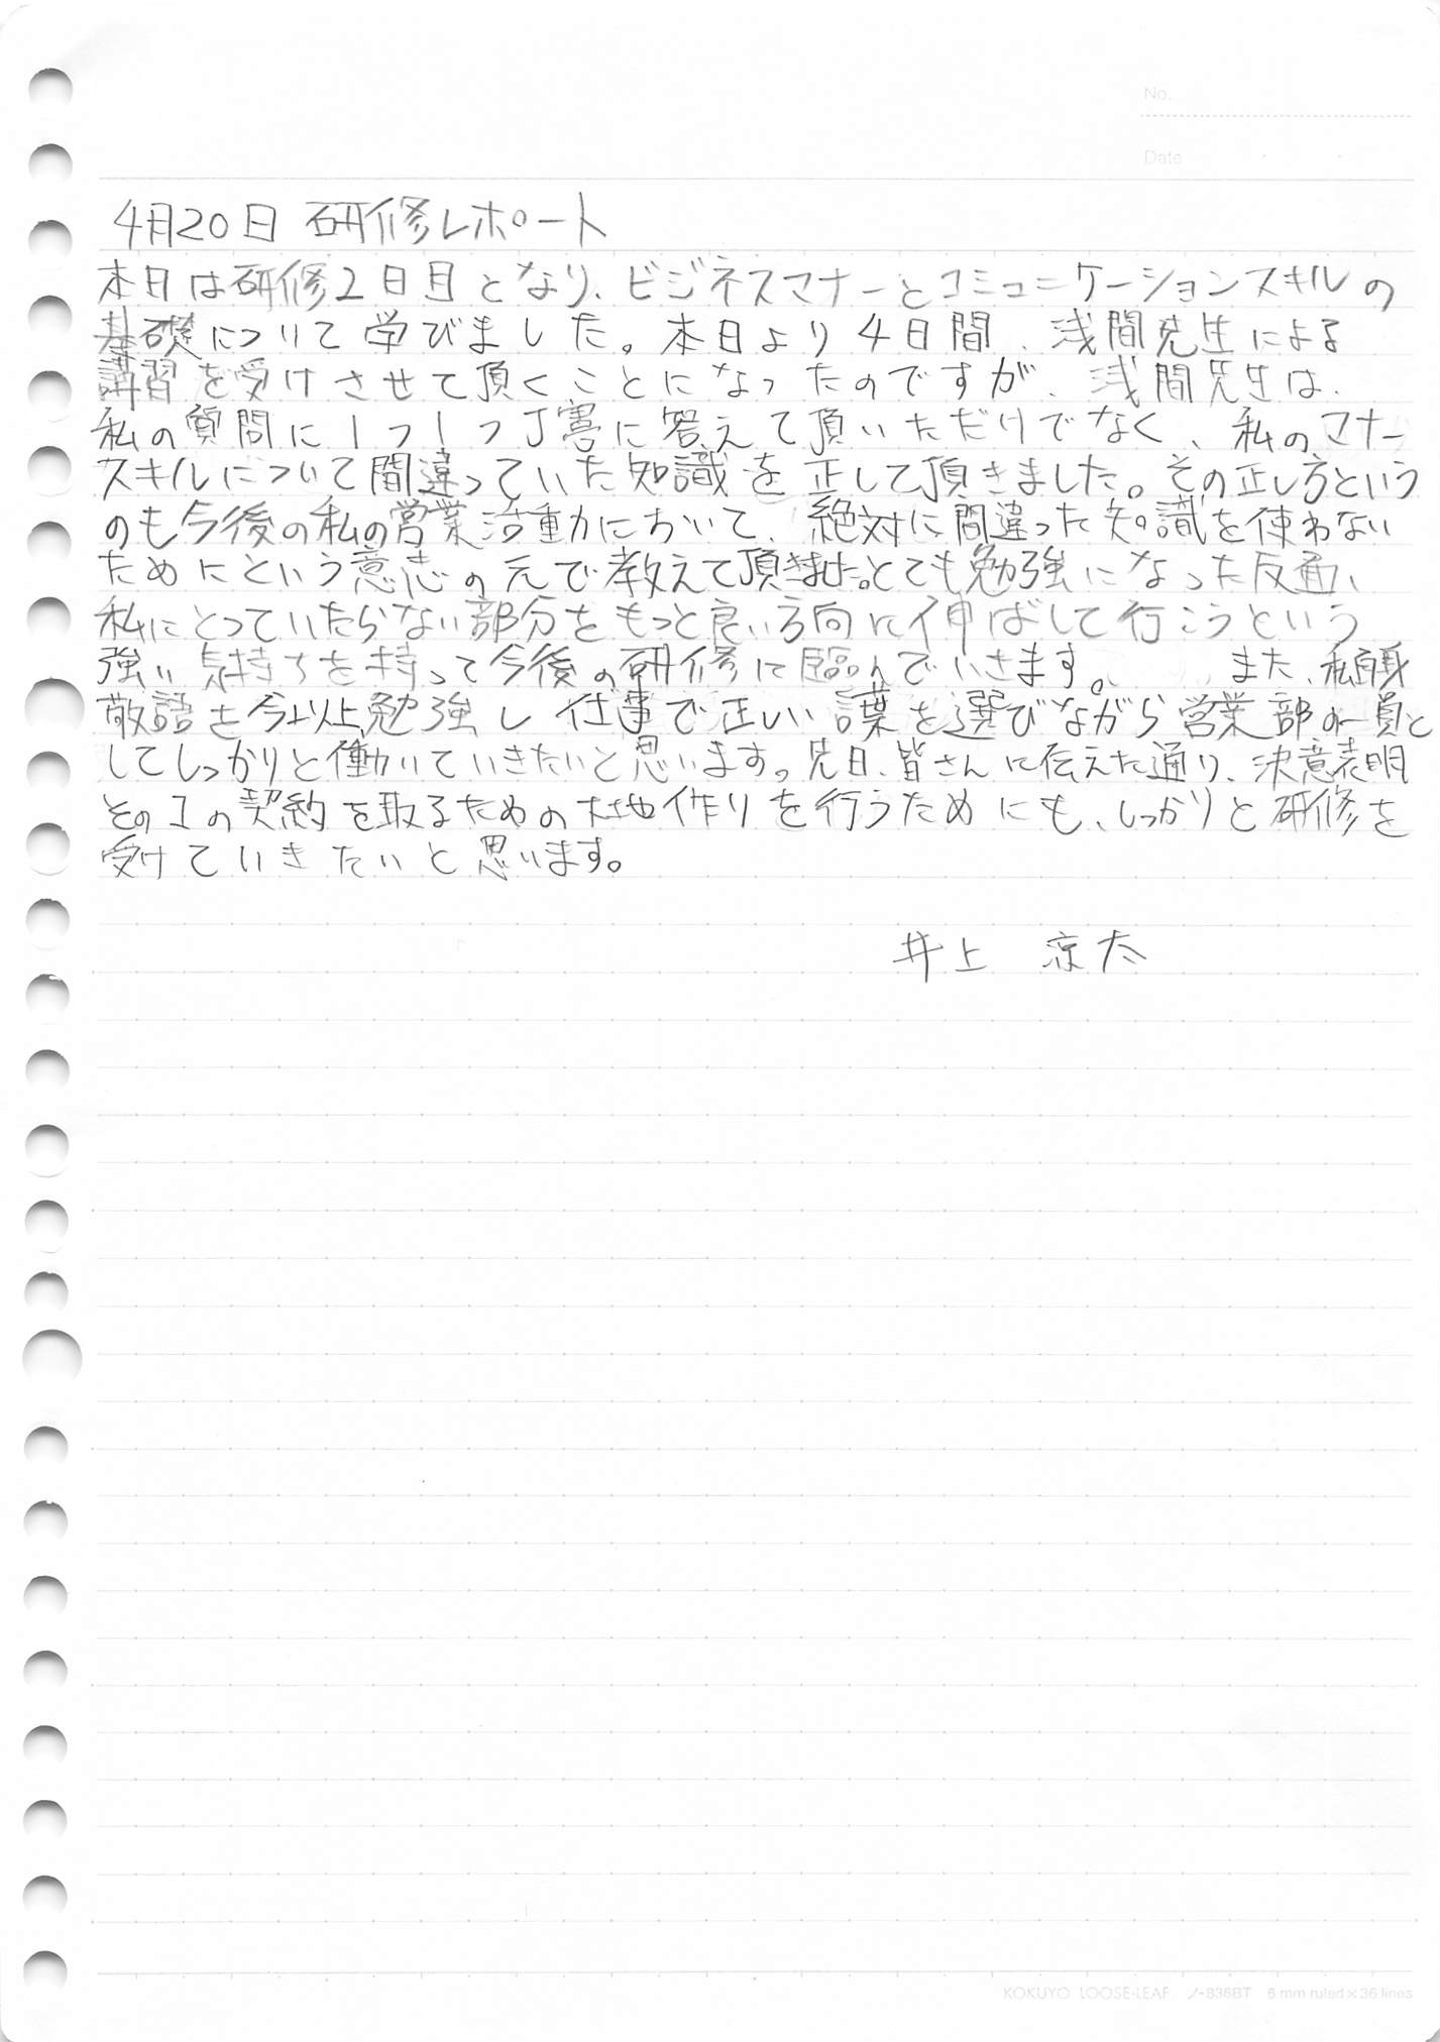 No.
Date
4月20日 研修レポート
本日は研修2日目となり、ビジネスマナーとコミュニケーションスキルの
基礎について学びました。本日より4日間、浅間先生による
講習を受けさせて頂くことになったのですが、浅間先生は、
私の質問に1つ1つ丁寧に答えて頂いただけでなく、私のマナー
スキルについて間違っていた知識を正して頂きました。その正し方という
のも今後の私の営業活動において、絶対に間違った知識を使わない
ためにという意志の元で教えて頂きました。とても勉強になった反面、
私にとっていたらない部分をもっと良い方向に伸ばして行こうという
強い気持ちを持って今後の研修に臨んでいきます。また、私自身
敬語を今以上勉強し仕事で正しい言葉を選びながら営業部の一員と
してしっかりと働いていきたいと思います。先日、皆さんに伝えた通り、決意表明
その1の契約を取るための土地作りを行うためにも、しっかりと研修を
受けていきたいと思います。
井上 涼太
KOKUYO LOOSE-LEAF ノ-836BT 6 mm ruled×36 lines